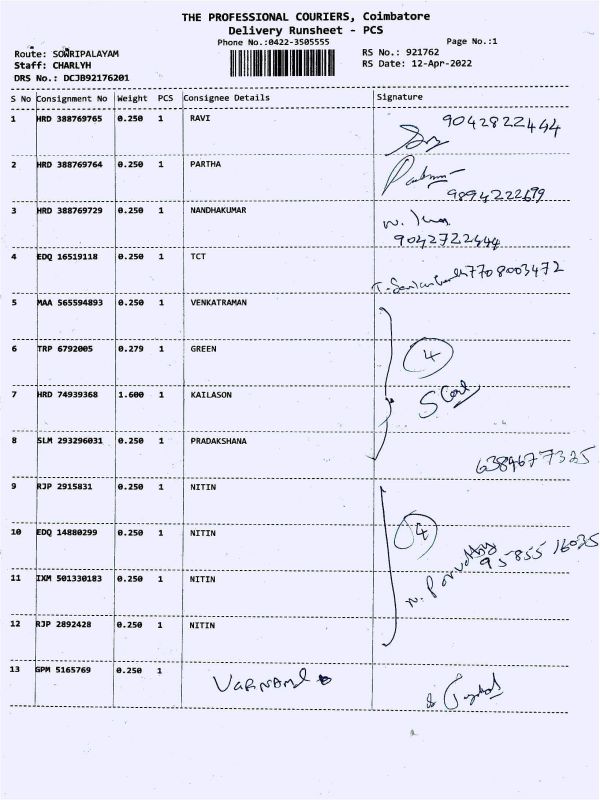 THE PROFESSIONAL COURIERS, Coimbatore
Delivery Runsheet - PCS
Phone No.:0422-3505555
Page No.:1
Route: SOWRIPALAYAM
RS No.: 921762
Staff: CHARLYH
RS Date: 12-Apr-2022
DRS No.: DCJB92176201
S No Consignment No Weight PCS Consignee Details Signature
1 HRD 388769765 0.250 1 RAVI 9042822444
2 HRD 388769764 0.250 1 PARTHA
9894222699
3 HRD 388769729 0.250 1 NANDHAKUMAR
9042722444
4 EDQ 16519118 0.250 1 TCT 7708003472
5 MAA 565594893 0.250 1 VENKATRAMAN
6 TRP 6792005 0.279 1 GREEN 4
7 HRD 74939368 1.600 1 KAILASON
8 SLM 293296031 0.250 1 PRADAKSHANA
6389677325
9 RJP 2915831 0.250 1 NITIN
10 EDQ 14880299 0.250 1 NITIN 4
95855 16035
11 IXM 501330183 0.250 1 NITIN
12 RJP 2892428 0.250 1 NITIN
13 GPM 5165769 0.250 1